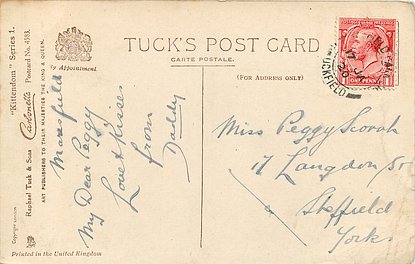 TUCK'S POST CARD
CARTE POSTALE.
(FOR ADDRESS ONLY)
By Appointment
"Kittendom" Series 1.
Carbonells Postcard No. 4533.
Raphael Tuck & Sons
ART PUBLISHERS TO THEIR MAJESTIES THE KING & QUEEN.
Copyright
Printed in the United Kingdom
Mansfield
My Dear Peggy
Love & Kisses
from
Daddy
ONE PENNY
UCKFIELD
Miss Peggy Scorah
17 Langdon St
Sheffield
Yorks